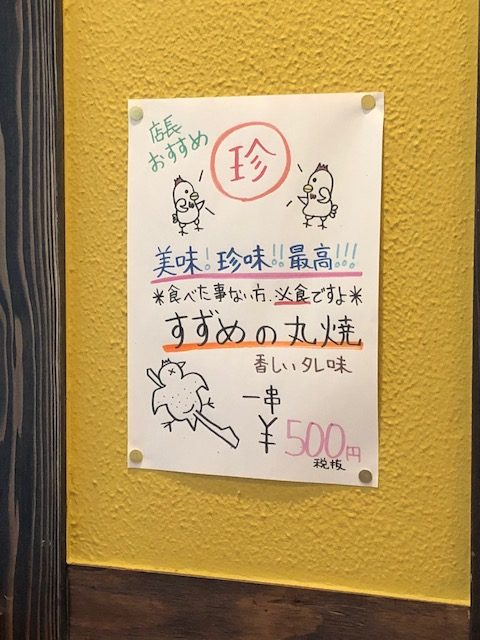 店長
おすすめ
珍
美味!珍味!!最高!!!
*食べた事ない方、必食ですよ*
すずめの丸焼
香しいタレ味
一串
¥500円
税抜